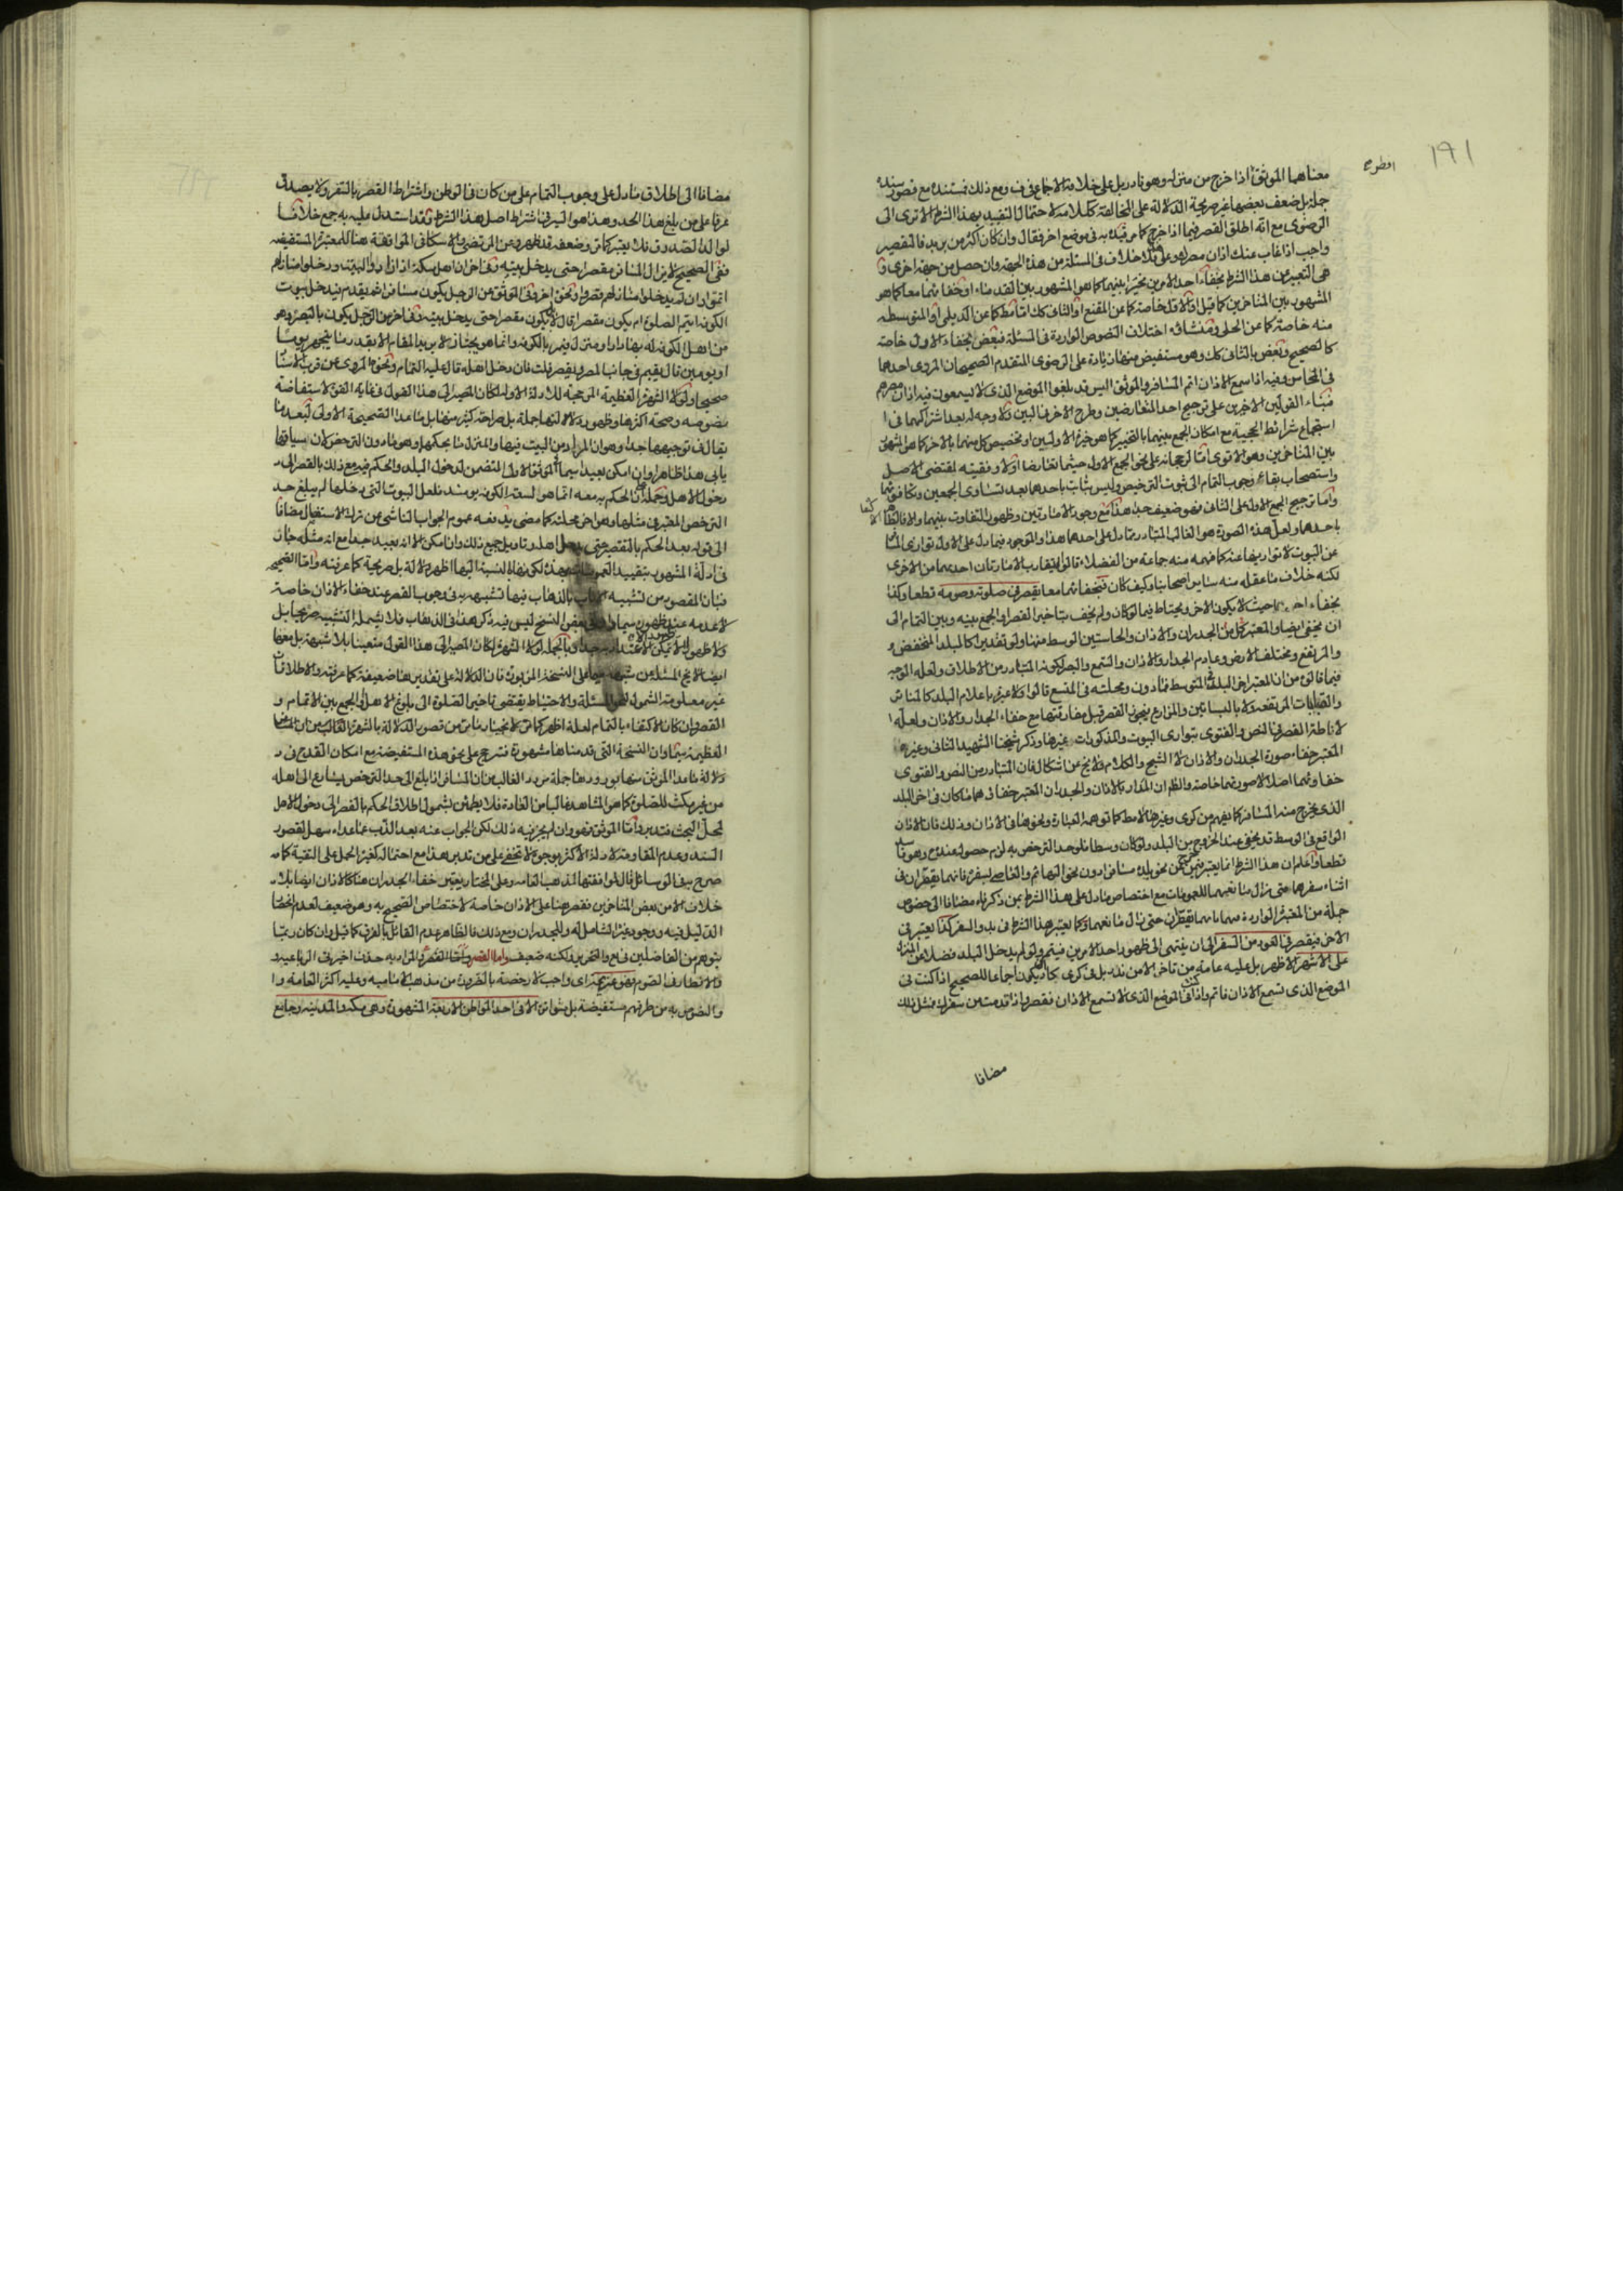 ١٩١
معناهما الموثق اذا خرج من منزله وهو نادر بل على خلافه الاجماع في ف ومع ذلك فمستنده مع قصور سنده
جملة بل ضعف بعضها غير صريحة الدلالة على المخالفة ككلامه لاحتمال التقييد بهذا الشرط الا ترى الى
الرضوى مع انه اطلق القصر فيما اذا خرج كما مر قيده به في موضع اخر فقال وان كان اكثر من بريد فالتقصير
واجب اذا غاب عنك اذان مصرك وعلى هذا فلا خلاف في المسئلة من هذه الجهة وان حصل من جهة اخرى و
هى التعبير عن هذا الشرط بخفاء احد الامرين مخيرا بينهما كما هو المشهور بين القدماء او خفائهما معا كما هو
المشهور بين المتأخرين كما قيل او الاول خاصة كما عن المقنع او الثانى كك اما مط كما عن الديلمى او المتوسط
منه خاصة كما عن الحلى ومنشاؤه اختلاف النصوص الواردة في المسئلة فبعض بخفاء الاول خاصة
كالصحيح وبعض بالثانى كك وهو مستفيض منها زيادة على الرضوى المتقدم الصحيحان المروى احدهما
في المحاسن وفيه اذا سمع الاذان اتم المسافر والموثق اليس قد بلغوا الموضع الذى لا يسمعون فيه اذان مصرهم
فبناء القولين الاخيرين على ترجيح احد المتعارضين وطرح الاخر من البين ولا وجه له بعد اشتراكهما في ا
استجماع شرائط الحجية مع امكان الجمع بينهما بالتخيير كما هو خيرة الاولين او تخصيص كل منهما بالاخر كما هو المشهور
بين المتأخرين وهو الاقوى اما لرجحانه على نحو الجمع الاول حيثما تعارضا اولا وفقيته لمقتضى الاصل
واستصحاب بقاء وجوب التمام الى ثبوت الترخيص وليس بثابت باحدهما بعد تساوى الجمعين وتكافؤهما
واما ترجيح الجمع الاول على الثانى فهو ضعيف جدا هذا مع وجود الامارتين وظهور التفاوت بينهما والا فالظ الاكتفا
باحدهما ولعل هذه الصورة هو الغالب المتبادر مما دل على احدهما هذا والموجود فيما دل على الاول توارى المسا
عن البيوت لا تواريها عنه كما فهمه منه جماعة من الفضلاء قالوا لتقارب الامارتان احديهما من الاخرى
لكنه خلاف ما عقله منه ساير اصحابنا وكيف كان فبخفائهما معا يقصر في صلوته وصومه قطعا وكذا
بخفاء احدهما حيث لا يكون الاخر ويحتاط فيما لو كان ولم يخف بتاخير القصر او الجمع بينه وبين التمام الى
ان يخفى ايضا والمعتبر كل من الجدران والاذان والحاستين الوسط منها ولو تقديرا كالبلد المنخفض و
والمرتفع ومختلف الارض وعادم الجدار والاذان والسمع والبصر لكونه المتبادر من الاطلاق ولعله الوجه
فيما قالوه من ان المعتبر اخر البلد المتوسط فما دون ومحلته في المتسع قالوا ولا عبرة باعلام البلد كالمنابر
والقباب المرتفعة ولا بالبساتين والمزارع فيجوز القصر قبل مفارقتها مع خفاء الجدار والاذان ولعله
لاناطة القصر في النص والفتوى بتوارى البيوت والمذكورات غيرها وذكر شيخنا الشهيد الثانى وغيره
المعتبر خفاء صورة الجدران والاذان لا الشبح والكلام فلا يخ عن اشكال فان المتبادر من النص والفتوى
خفاؤهما اصلا لا صورتهما خاصة والظ ان المدار بالاذان والجدران المعتبر خفاؤهما ما كان في اخر البلد
الذى يخرج منه المسافر كما يفهم من كرى وغيرها لا مط كما توهمه العبارة ونحوها في الاذان وذلك فان الاذان
الواقع في الوسط قد يخفى عند الخروج من البلد ولو كان وسطا فلو حد الترخص به لزم حصوله عنده وهو فاسد
قطعا واعلم ان هذا الشرط انما يعتبر فيمن يخرج من نحو بلده مسافرا دون نحو الهائم والعاصى بسفره فانهما يقصران في
اثناء سفرهما متى زال مانعهما للعمومات مع اختصاص ما دل على هذا الشرط بمن ذكرناه مضافا الى خصوص
جملة من المعتبرة الواردة فيهما بانهما يقصران حتى زال مانعهما وكما يعتبر هذا الشرط في بدو السفر كذا يعتبر في
الاخر فيقصر في العود من السفر الى ان ينتهى الى ظهور احد الامرين فيتم ولو لم يدخل البلد فضلا عن المنزل
على الاشهر الاظهر بل عليه عامة من تاخر الا من ندر بل في كرى كاد ان يكون اجماعا للصحيح اذا كنت في
الموضع الذى تسمع الاذان فاتم واذا كنت في الموضع الذى لا تسمع الاذان فقصر واذا قدمت من سفرك فمثل ذلك
مضافا
مضافا الى اطلاق ما دل على وجوب التمام على من كان في الوطن واشتراط القصر بالسفر ولا يصدق
عرفا على من بلغ هذا الحد وهذا هو السر في اشتراط اصل هذا الشرط وقد استدل عليه به جمع خلافا
لوالد الصدوق فلم يعتبره كما مر وضعفه قد ظهر وعن المرتضى والاسكافى الموافقة هنا للمعتبرة المستفيضة
ففى الصحيح لا يزال المسافر مقصرا حتى يدخل بيته وفى اخر ان اهل مكة اذا زاروا البيت ودخلوا منازلهم
اتموا وان لم يدخلوا منازلهم قصروا ونحوه اخر وفى الموثق عن الرجل يكون مسافرا ثم يقدم فيدخل بيوت
الكوفة ايتم الصلوة ام يكون مقصرا قال لا يكون مقصرا حتى يدخل بيته وفى اخر عن الرجل يكون بالبصرة وهو
من اهل الكوفة له بها دار ومنزل فيمر بالكوفة وانما هو يجتاز لا يريد المقام الا بقدر ما يتجهز يوما
او يومين قال يقيم في جانب المصر ويقصر قلت فان دخل اهله قال عليه التمام ونحوه المروى عن قرب الاسنا
صحيحا ولولا الشهرة العظيمة المرجحة للادلة الاولة لكان المصير الى هذا القول في غاية القوة لاستفاضة
نصوصه وصحة اكثرها وظهور دلالتها جملة بل صراحة كثير منها بل ما عدا الصحيحة الاولى لبعد ما
يقال في توجيهها جدا وهو ان المراد من البيت فيها والمنزل ما بحكمهما وهو ما دون الترخص كان سياقها
يابى هذا ظاهرا وان امكن بعيدا سيما الموثق الاول المتضمن لدخول البلد والحكم فيه مع ذلك بالقصر الى
دخول الاهل وحمله ان الحكم به معه انما هو لسعة الكوفة يومئذ فلعل البيوت التى دخلها لم يبلغ حد
الترخص المعتبر في مثلها وهو اخر محلته كما مضى يدفعه عموم الجواب الناشى عن ترك الاستفصال مضافا
الى قوله بعد الحكم بالتقصير حتى يدخل اهله وتاويل جميع ذلك وان امكن الا انه بعيد جدا مع انه مثله جائز
في ادلة المشهور بتقييد العمومات بهذه لكونها بالنسبة اليها اظهر دلالة بل صريحة كما عرفته واما الصحيحة
فبان المقصود من تشبيه الاياب بالذهاب فيها تشبيهه به في وجوب القصر عند خفاء الاذان خاصة
لا عدمه عند ظهوره سيما وفى بعض النسخ ليس فيه ذكر هذا في الذهاب فلا يشمله التشبيه صريحا بل
ولا ظهورا وبالجملة لولا الشهرة لكان المصير الى هذا القول متعينا بلا شبهة بل معها
ايضا لا يخ المسئلة عن شبهة سيما على النسخة المزبورة فان الدلالة على تقديرها ضعيفة كما عرفته والاطلاقات
غير معلومة الشمول لنحو المسئلة والاحتياط يقتضى تاخير الصلوة الى بلوغ الاهل او الجمع بين الاتمام و
القصر وان كان الاكتفاء بالتمام لعله اظهر كما مر لانجبار ما مر من قصور الدلالة بالشهرة
العظيمة سيما وان النسخة التى قدمناها مشهورة فترجح على نحو هذه المستفيضة مع امكان القدح في
دلالة ما عدا الموثق منها بورودها جملة مورد الغالب من ان المسافر اذا بلغ الى حد الترخص يسارع الى اهله
من غير مكث للصلوة كما هو المشاهد غالبا من العادة فلا يطمئن بشمول اطلاق الحكم بالقصر الى دخول الاهل
لمحل البحث فتدبر واما الموثق فهو وان لم يجر فيه ذلك لكن الجواب عنه بعد الذب عما عداه سهل لقصور
السند وعدم المقاومة لادلة الاكثر بوجوه لا تخفى على من تدبر هذا مع احتماله كغيره الحمل على التقية كما
صرح به في الوسائل قال لموافقتها لمذهب العامة وعلى المختار يعتبر خفاء الجدران هنا كالاذان ايضا بلا
خلاف الا من بعض المتأخرين فقصر هنا على الاذان خاصة لاختصاص الصحيح به وهو ضعيف لعدم انحصا
الدليل فيه ووجود غيره الشامل له وللجدران ومع ذلك فالظاهر عدم القائل بالفرق كما قيل وان كان ربما
يتوهم من الفاضلين في يع والتحرير لكنه ضعيف واما القصر والمراد به حذف اخيرتى الرباعية
والافطار في الصوم فهو عزيمة اى واجب لا رخصة بالضرورة من مذهب الامامية وعليه اكثر العامة و
والنصوص به من طرقهم مستفيضة بل متواترة الا في احد المواطن الاربعة المشهورة وهى مكة والمدينة وجامع